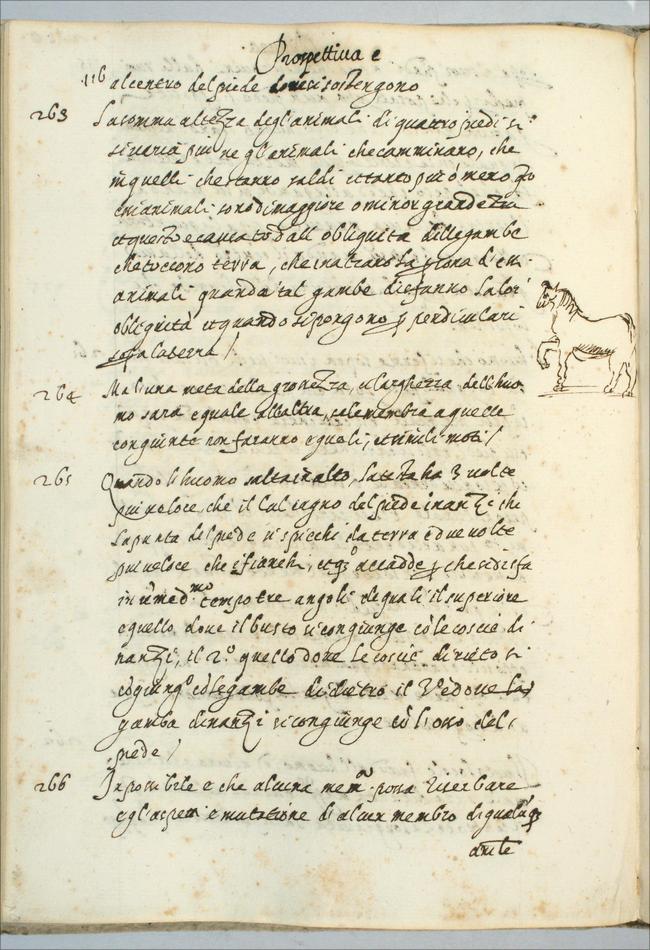 Prospettiua e
116
al centro del piede doue si sostengono
263 La somma altezza degl'animali di quattro piedi si
si uaria piu ne gl'animali che camminano, che
in quelli che stanno saldi et tanto piu o meno q̃to
che animali sono di maggiore o minor grandezza
et questo e causato dall obliquita delle gambe
che toccono terra, che inalzano la
animali quando tal gambe disfanno la lor
obliquita et quando si pongono p̲ perpendiculari
sopra la terra /
264 Mai una meta della grossezza, e larghezza dell'huo-
mo sara equale all'altra, se le membra a quelle
congiunte non faranno equali, et simili moti /
265 Quando l'huomo salta in alto, la testa ha 3 uolte
piu veloce, che il calcagno del piede inanzi che
la punta del piede si spicchi da terra e due uolte
piu veloce che i fianchi, et q̃sto accadde p̲ che si disfa
in ũ med.mo tempo tre angoli de quali il superiore
e quello doue il busto si congiunge cõ le coscie di-
nanzi, il 2.º quello doue le coscie di rieto si
cõgiungº cõ le gambe di dietro il 3º e doue la
gamba dinanzi si congiunge cõ l'osso del
piede /
266 Inpossibile e che alcuna mem.ª possa riserbare
gl'aspetti e mutatione di alcun membro di qualũq̃